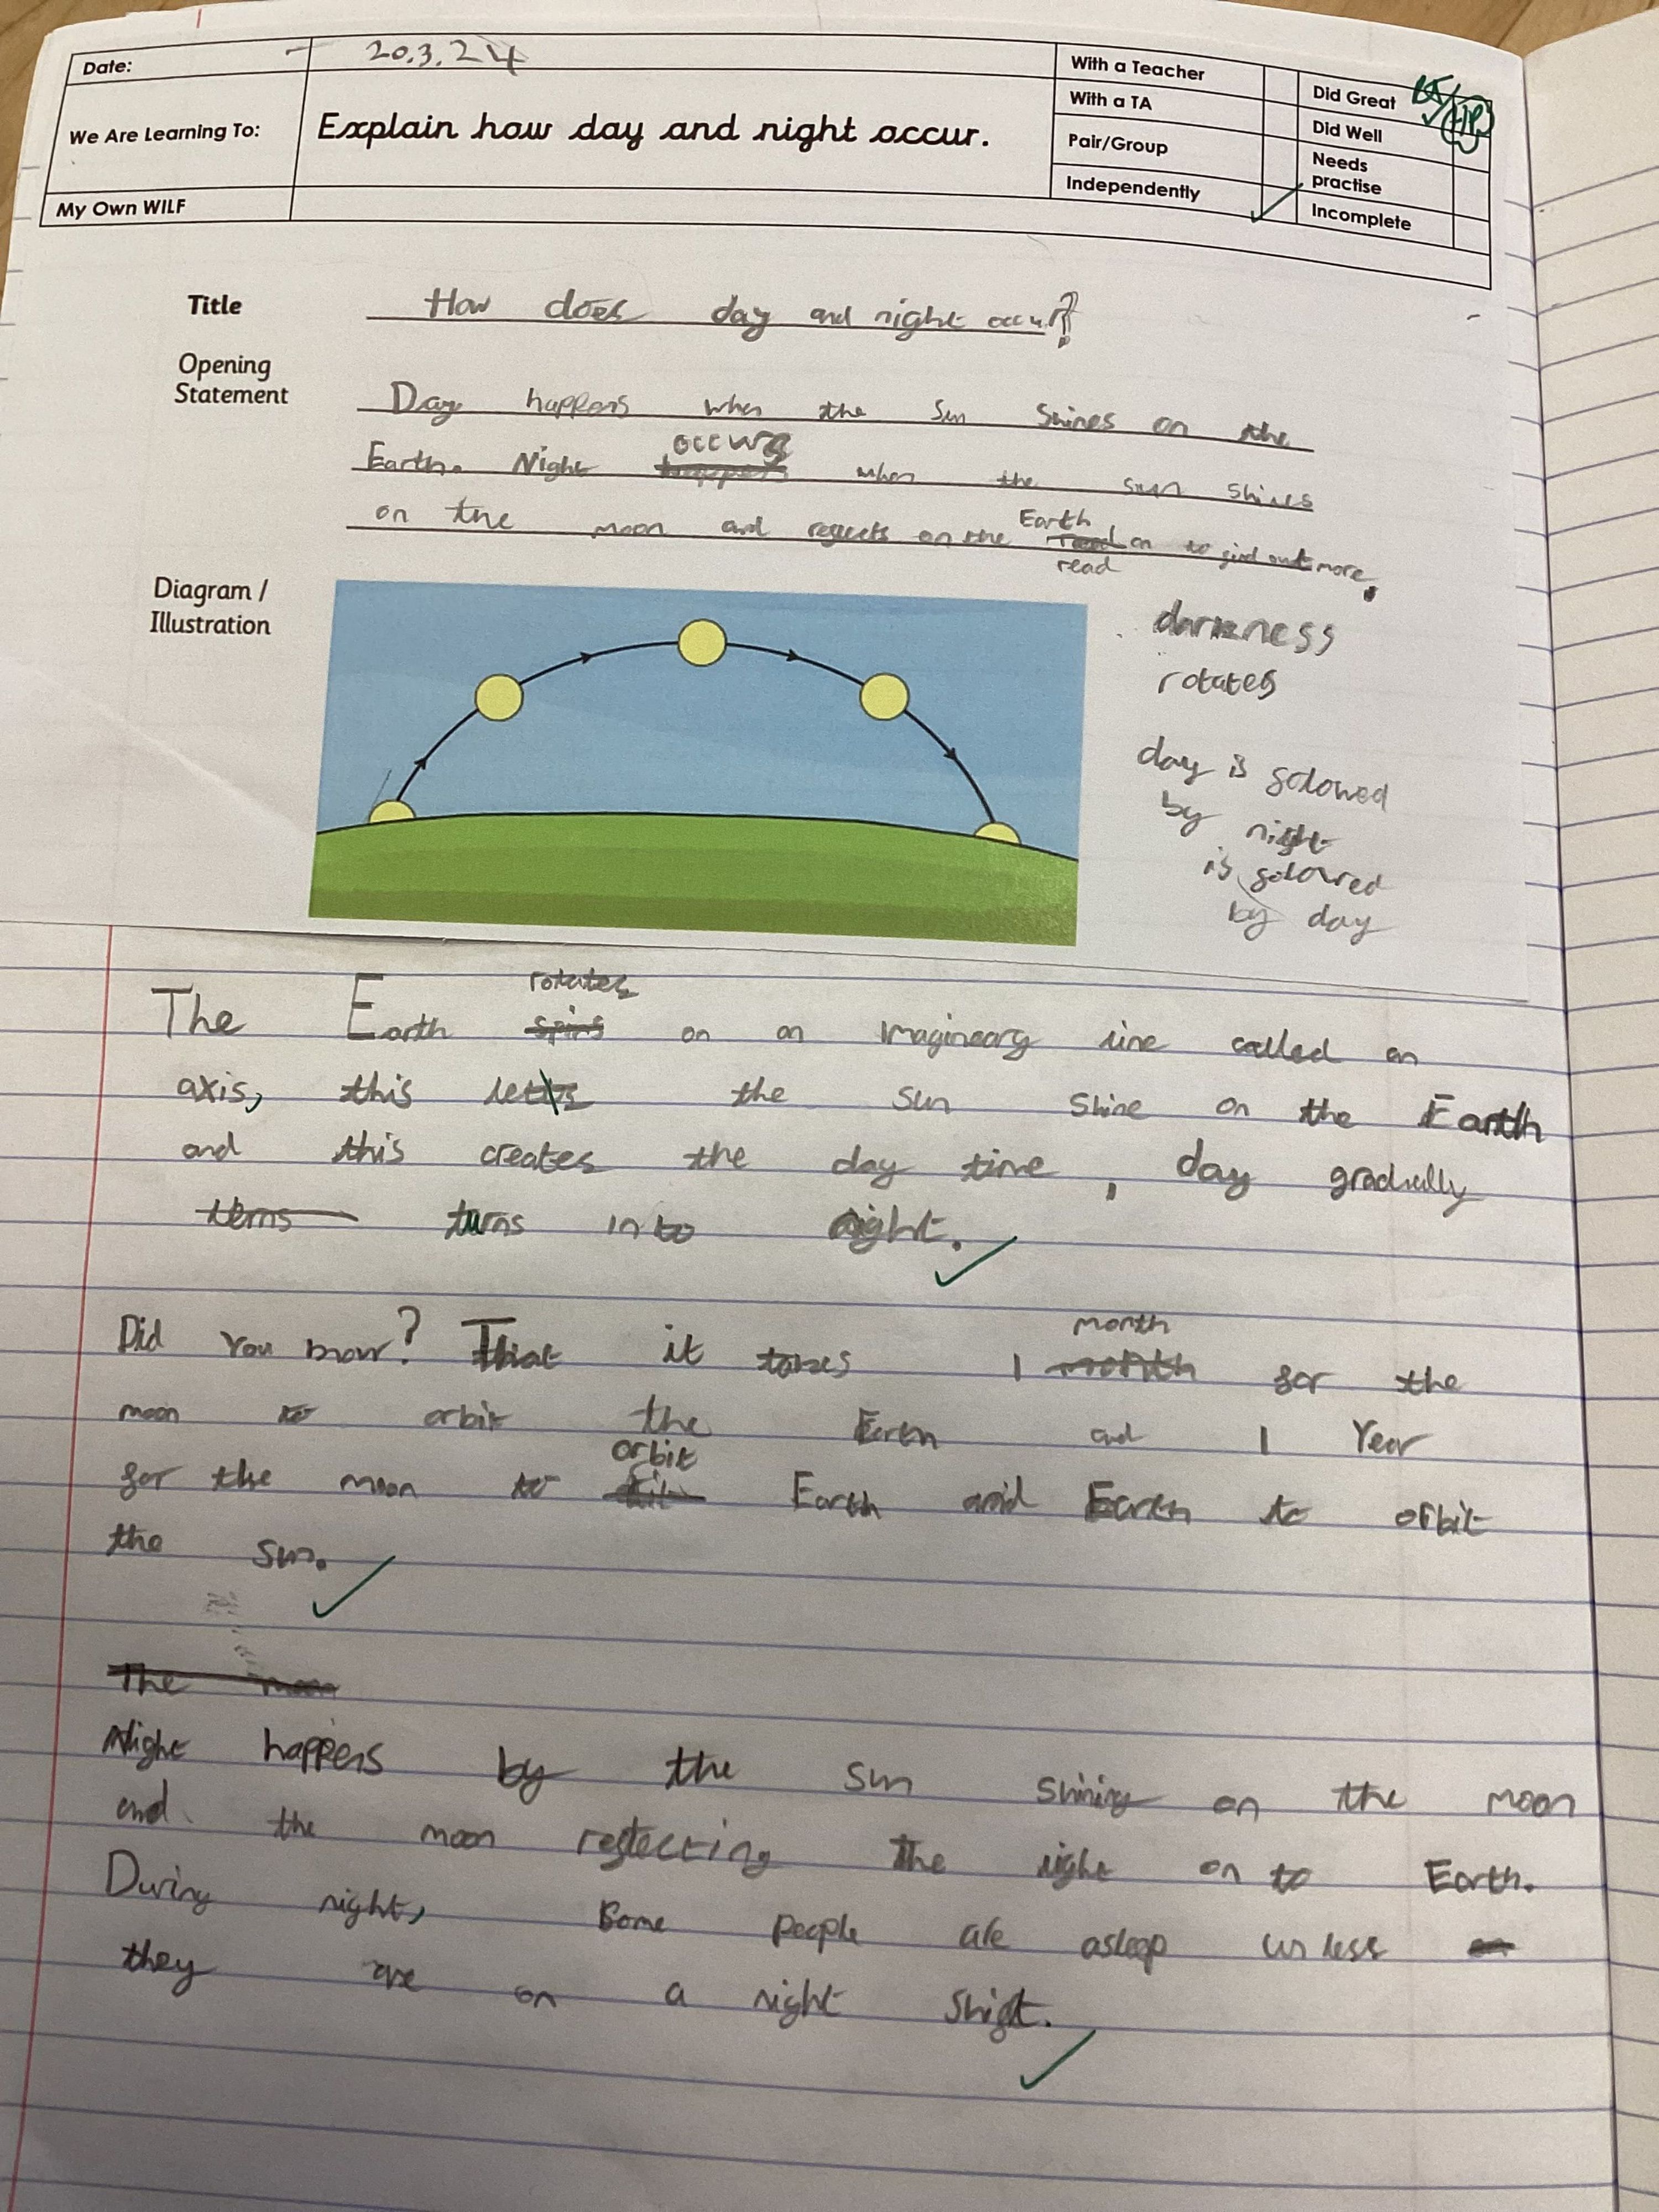 Date: 20.3.24
We Are Learning To: Explain how day and night occur.
My Own WILF
With a Teacher
With a TA
Pair/Group
Independently
Did Great
Did Well
Needs practise
Incomplete
Title How does day and night occur?
Opening Statement
Day happens when the Sun Shines on the
Earth. Night occurs when the sun shines
on the moon and reflects on the Earth read on to find out more.
Diagram / Illustration
darkness
rotates
day is folowed
by night
is folowed
by day
The Earth rotates on an Imagineary line called an
axis, this let the sun shine on the Earth
and this creates the day time, day gradually
turns in to night.
Did You know? That it takes 1 month for the
moon to orbit the Earth and 1 Year
for the moon to orbit Earth and Earth to orbit
the sun.
The moon
Night happens by the sun shining on the moon
and the moon reflecting the light on to Earth.
During night, Some people are asleep un less
they are on a night shift.